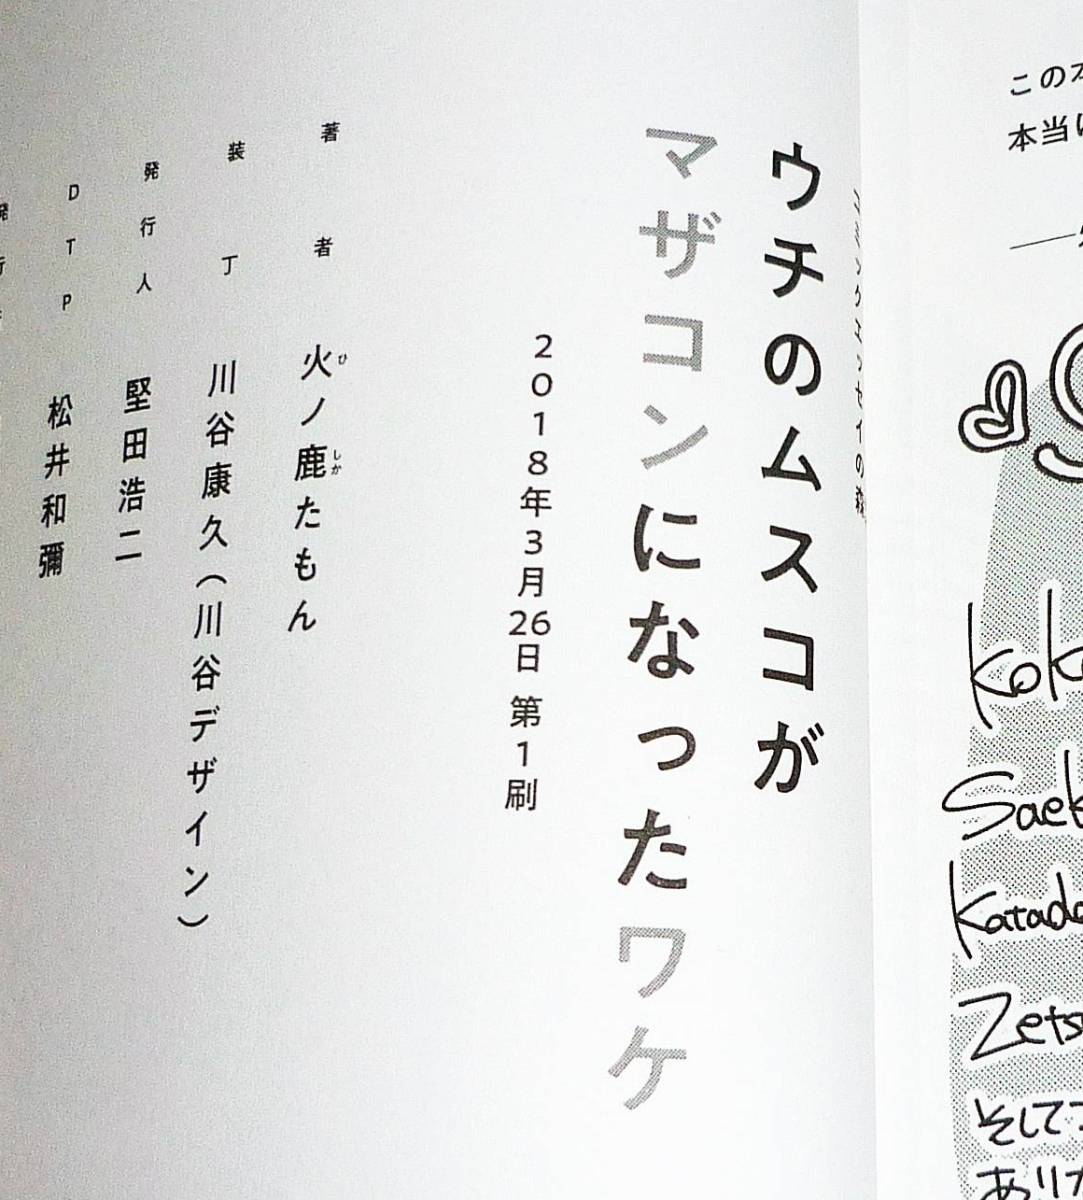 この
本当に
koko
Saek
Katada
Zets
そしてこ
ありが
コミックエッセイの森
ウチのムスコが
マザコンになったワケ
2018年3月26日 第1刷
著者 火ノ鹿たもん
ひ しか
装丁 川谷康久(川谷デザイン)
発行人 堅田浩二
DTP 松井和彌
発行